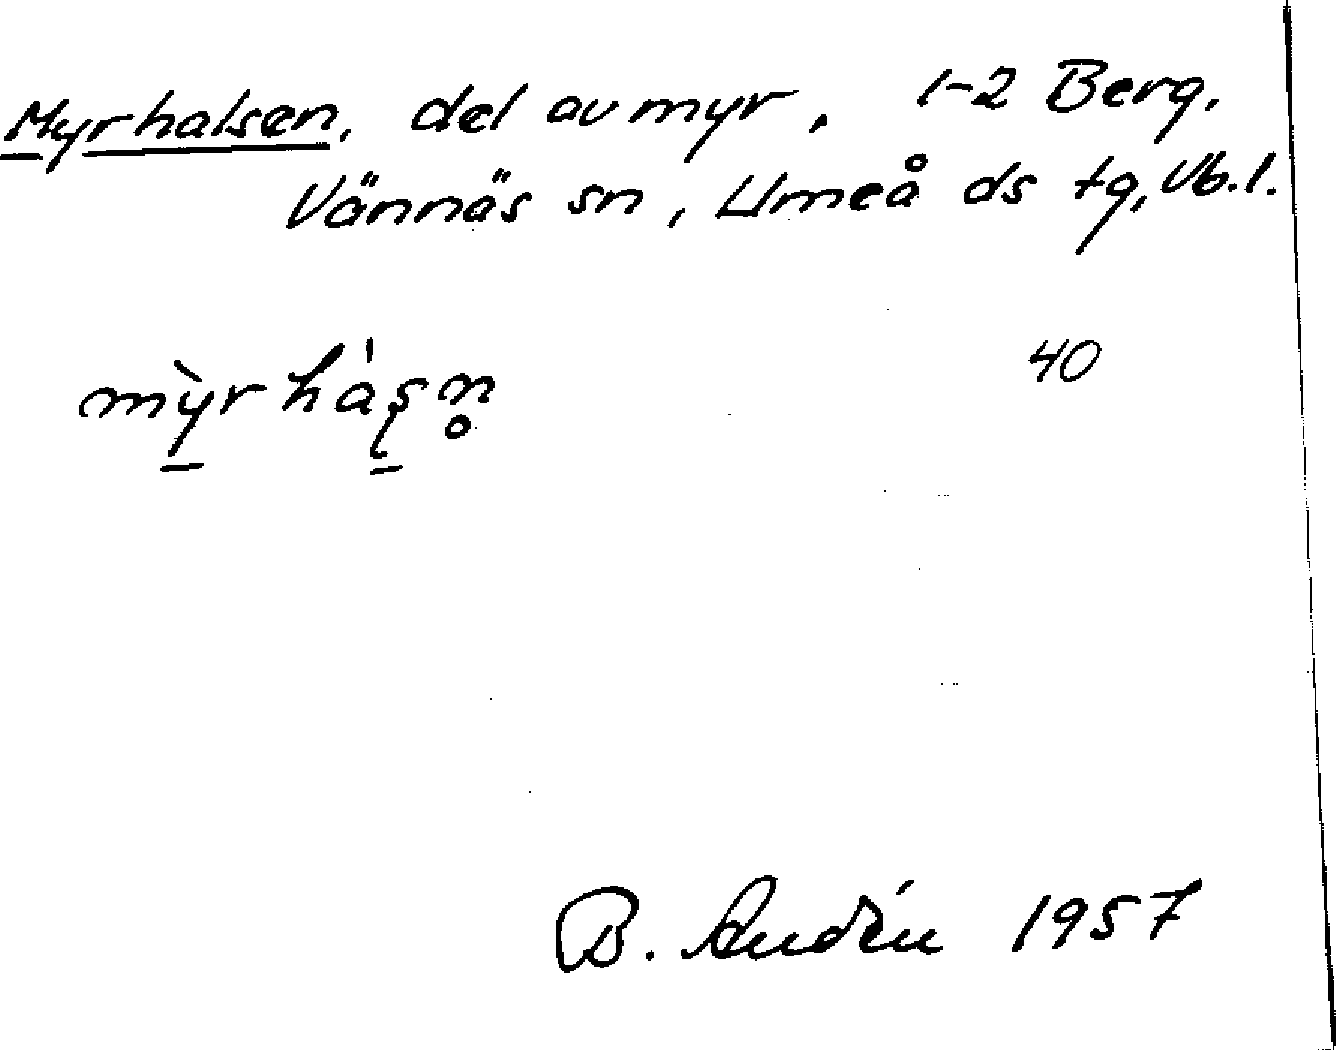 Myrhalsen, del av myr, 1-2 Berg,
Vännäs sn, Umeå ds tg, Vb. l.
40
mỳrhàʂn̥
B. Audén 1957